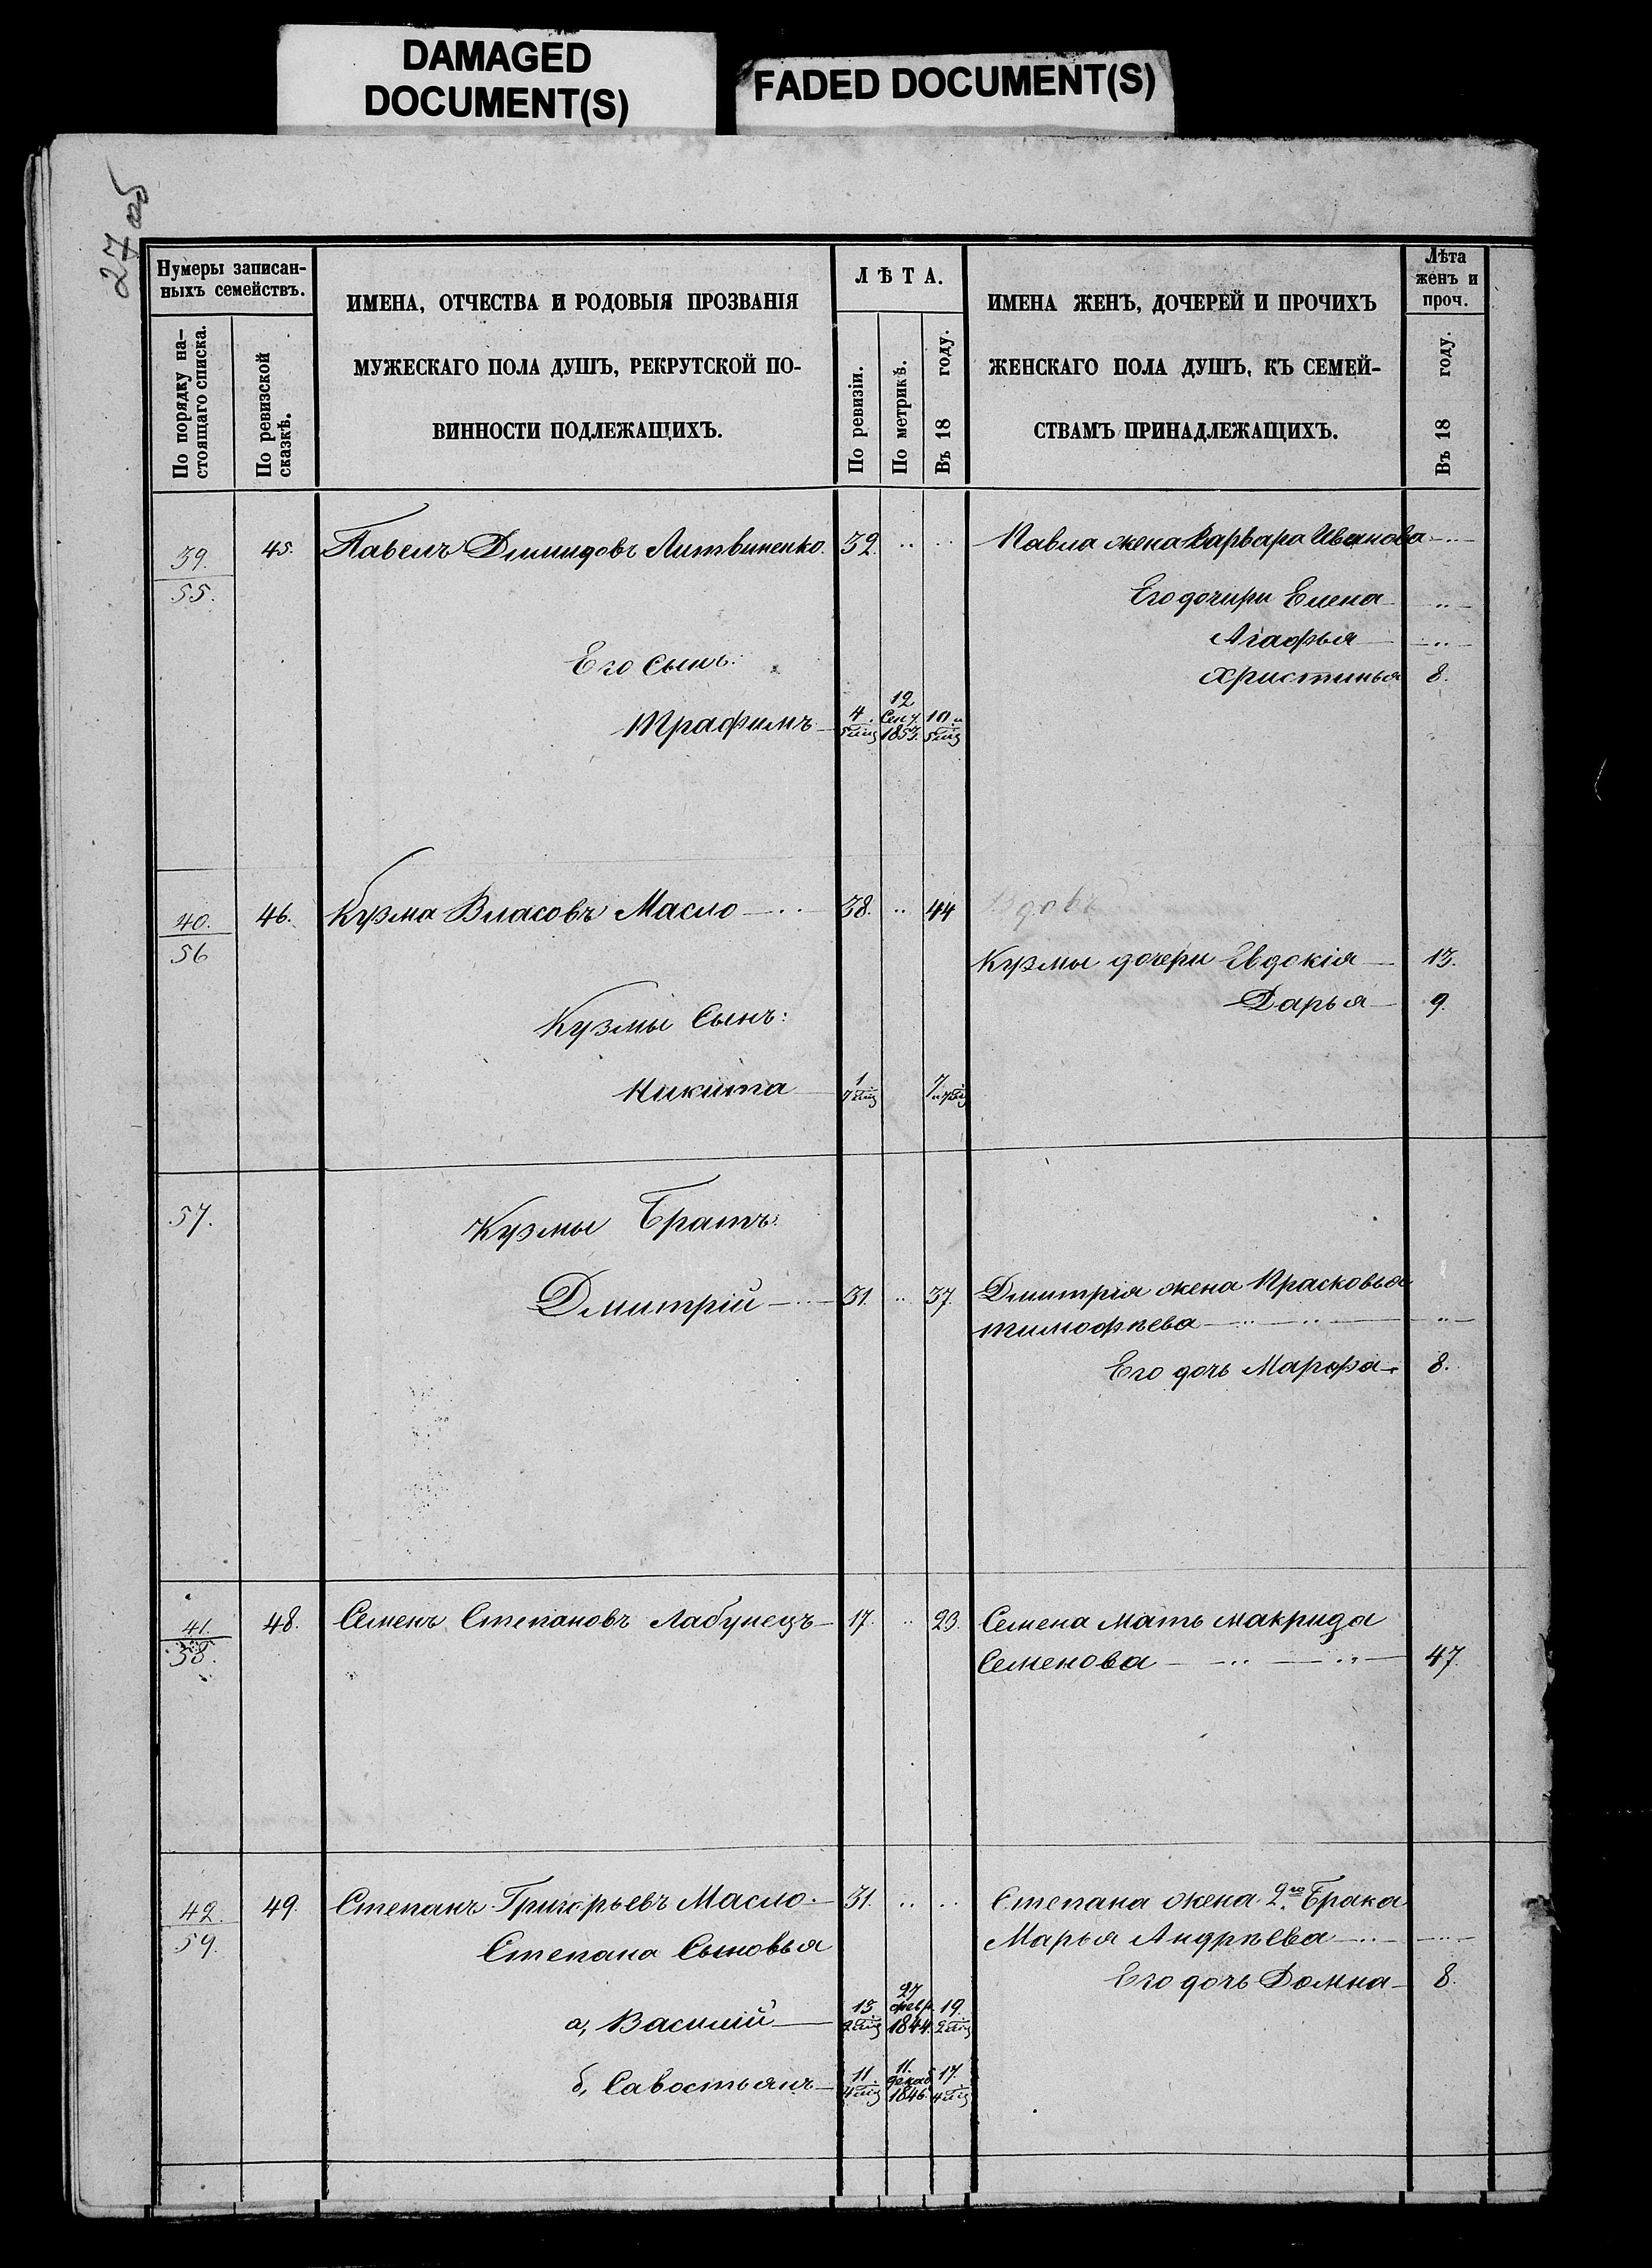 DAMAGED
DOCUMENT(S)
FADED DOCUMENT(S)
27 об
Нумеры записан-
ныхъ семействъ.
По порядку на-
стоящаго списка.
По ревизской
сказкѣ.
ИМЕНА, ОТЧЕСТВА И РОДОВЫЯ ПРОЗВАНІЯ
МУЖЕСКАГО ПОЛА ДУШЪ, РЕКРУТСКОЙ ПО-
ВИННОСТИ ПОДЛЕЖАЩИХЪ.
ЛѢТА.
По ревизіи.
По метрикѣ.
Въ 18 году.
ИМЕНА ЖЕНЪ, ДОЧЕРЕЙ И ПРОЧИХЪ
ЖЕНСКАГО ПОЛА ДУШЪ, КЪ СЕМЕЙ-
СТВАМЪ ПРИНАДЛЕЖАЩИХЪ.
Лѣта
женъ и
проч.
Въ 18 году.
39. 45. Павелъ Димидовъ Литвиненко. 32. Павла жена Варвара Иванова
55.
Его дочири Елена
Агафья
Его Сынъ:
Христинья 8.
Трафимъ 4. 5 мц 12 Сент. 1853. 10. и 5 мц
40. 46. Кузма Власовъ Масло 38. 44 Вдовъ
56
Кузмы дочери Евдокія 13.
Дарья 9.
Кузмы Сынъ:
Никита 1 7 мц 7 и 7 мц
57.
Кузмы Братъ:
Дмитрій 31. 37. Дмитрія жена Прасковья
тимофѣева
Его дочь Марфа 8.
41. 48. Семенъ Степановъ Лабунецъ 17. 23. Семена Мать макрида
58.
Семенова 47.
42. 49. Степанъ Григорьевъ Масло 31. Степана жена 2го Брака
59.
Степана Сыновья
Марья Андрѣева
Его дочь Домна 8.
а, Василій 13 2 мц 27 февр. 1844. 19. 2 мц
б, Савостьянъ 11. 4 мц 11. декаб 1846. 17. 4 мц